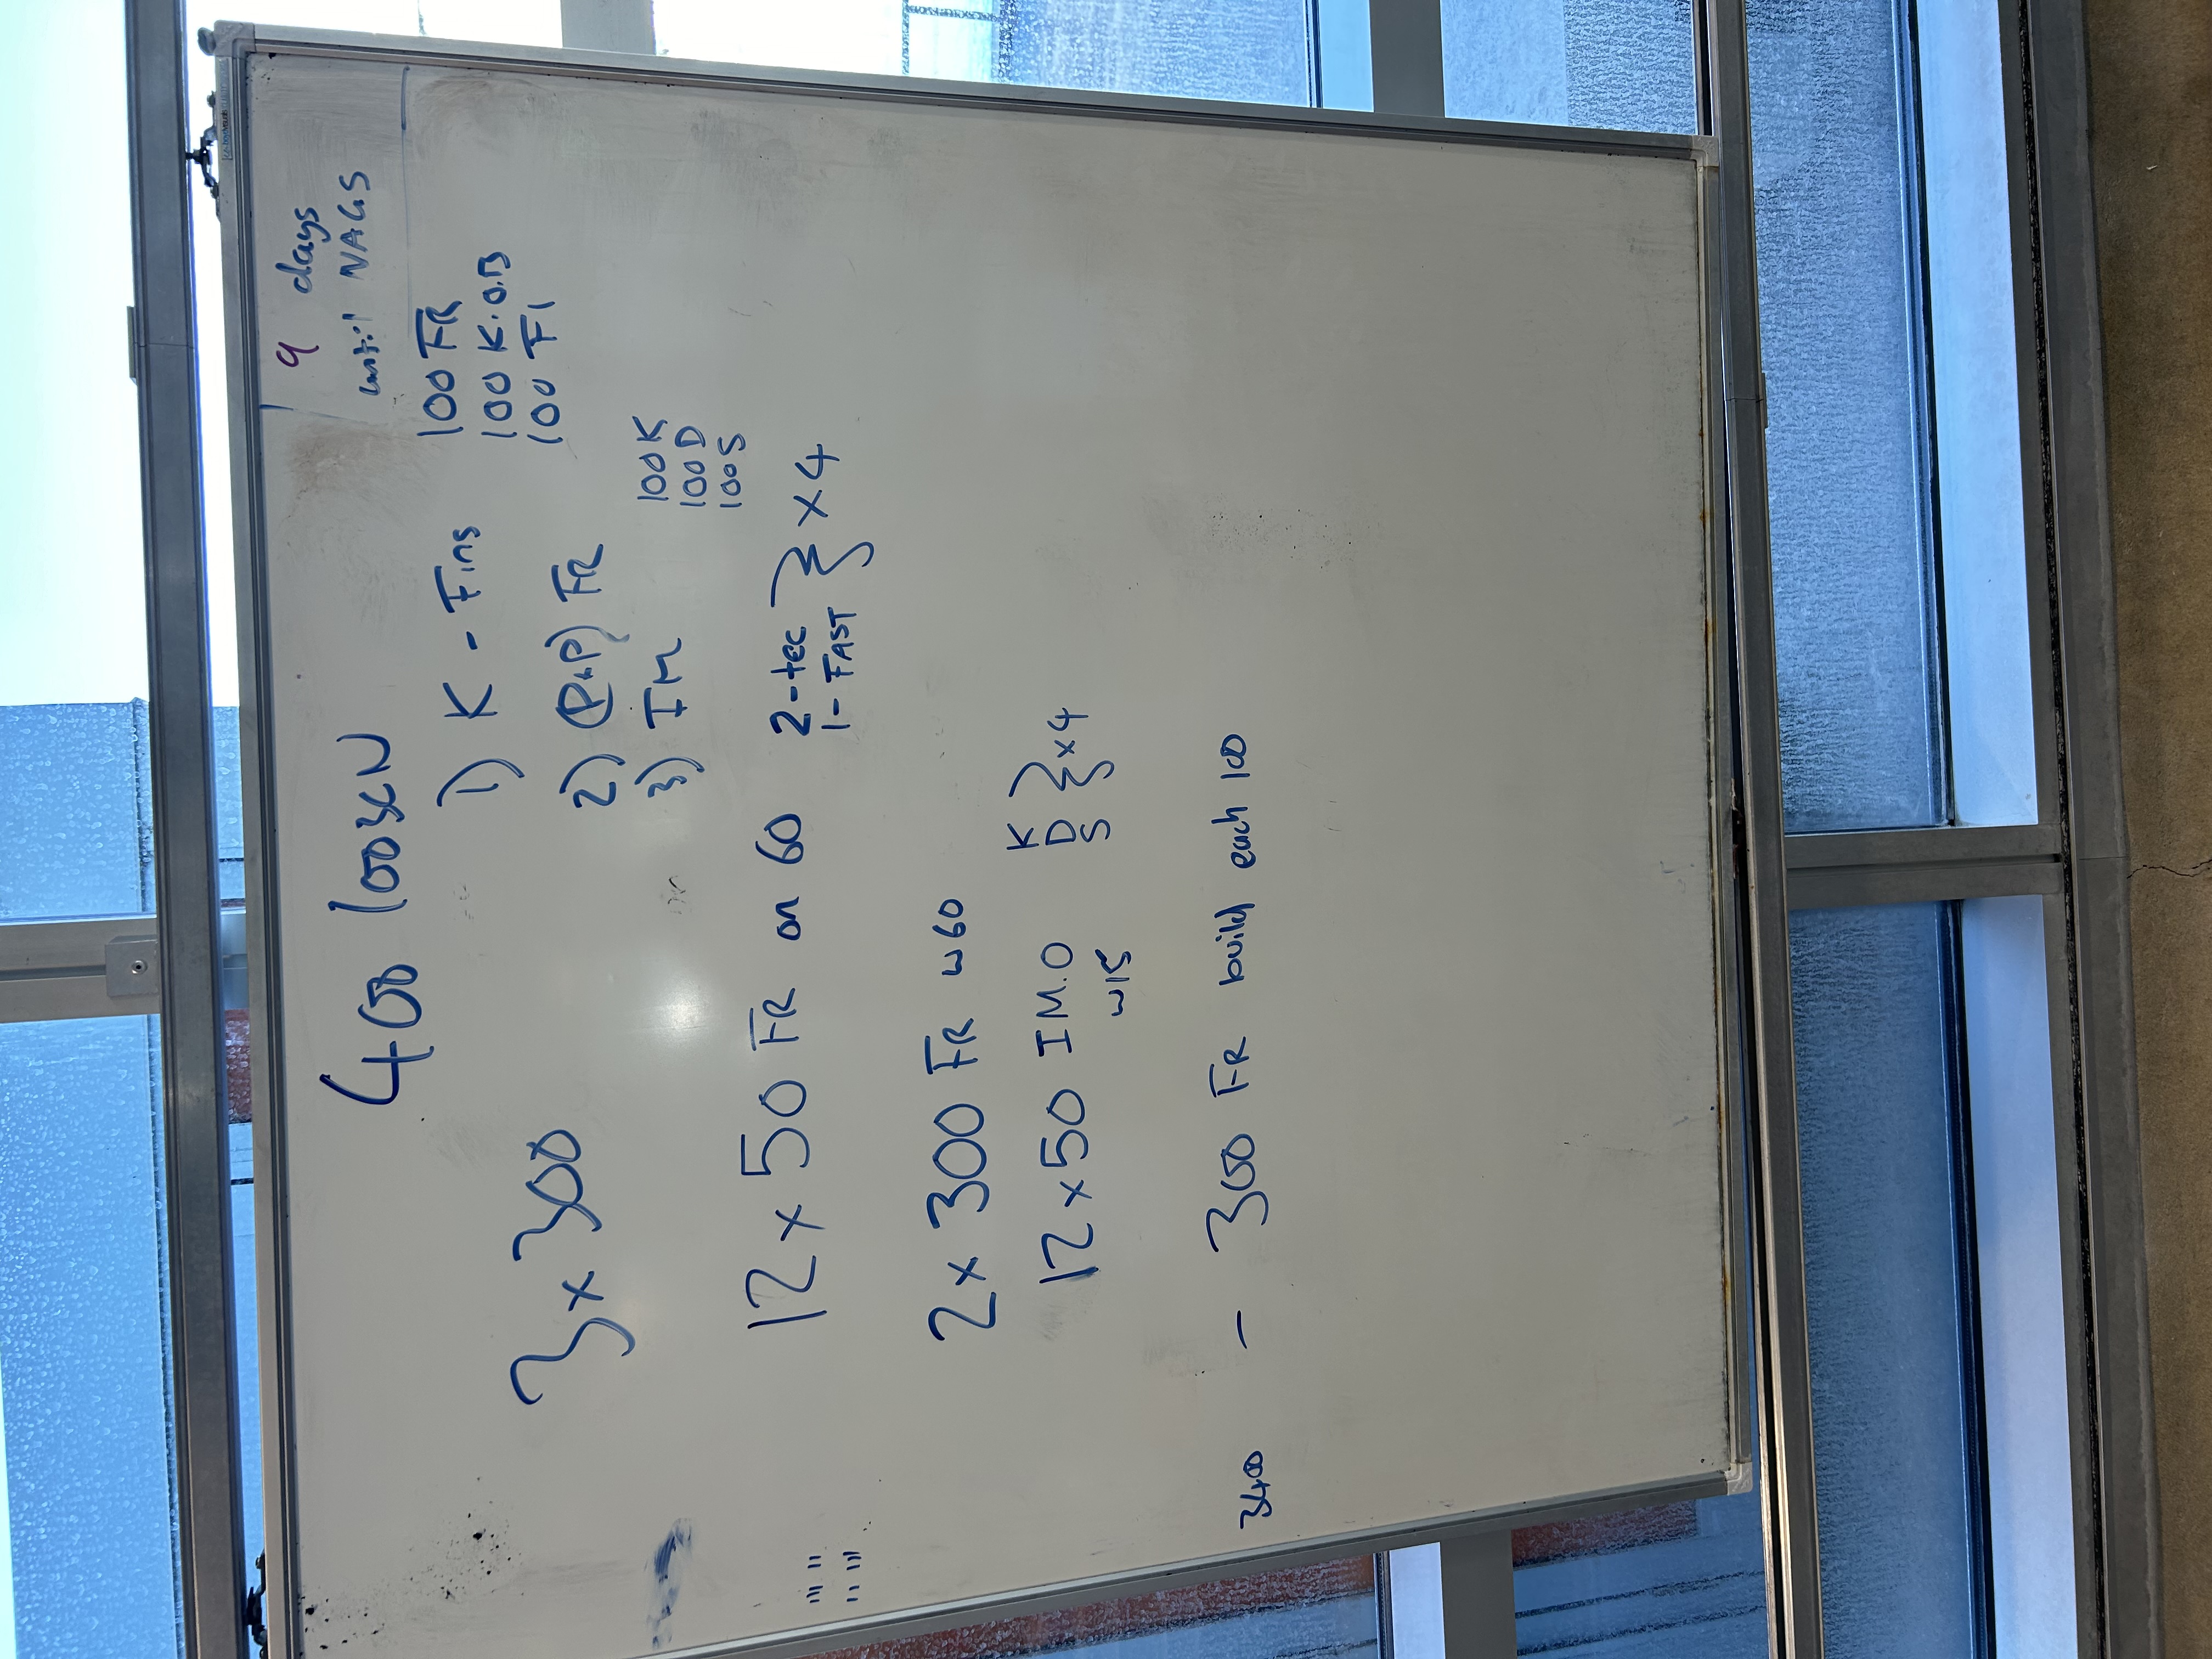 9 days
until NAGS
400 loosen
3x300
1) K - Fins
100 FR
100 K.O.B
100 FI
2) (P+P) FR
3) IM
100K
100D
100S
12 x 50 FR on 60
2-tec
1- FAST
} x 4
2x 300 FR w60
12 x 50 IM.O
w15
K
D
S
} x 4
3400
- 300 FR build each 100